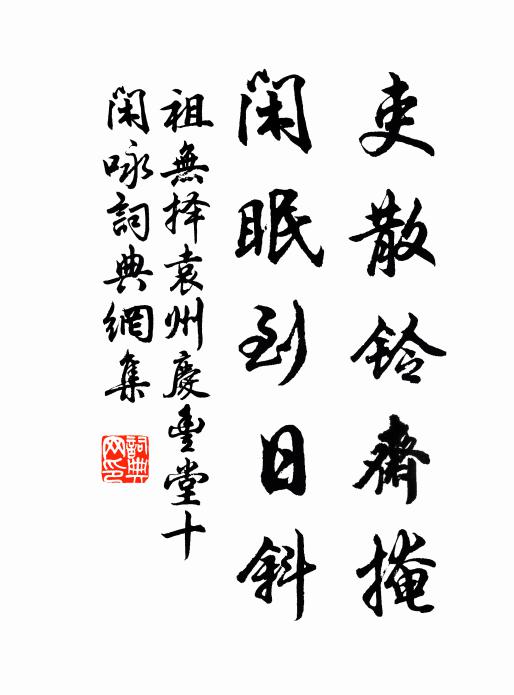 吏散鈴齋掩
閑眠到日斜
祖無择袁州慶豐堂十
閑咏詞典網集
詞典網印